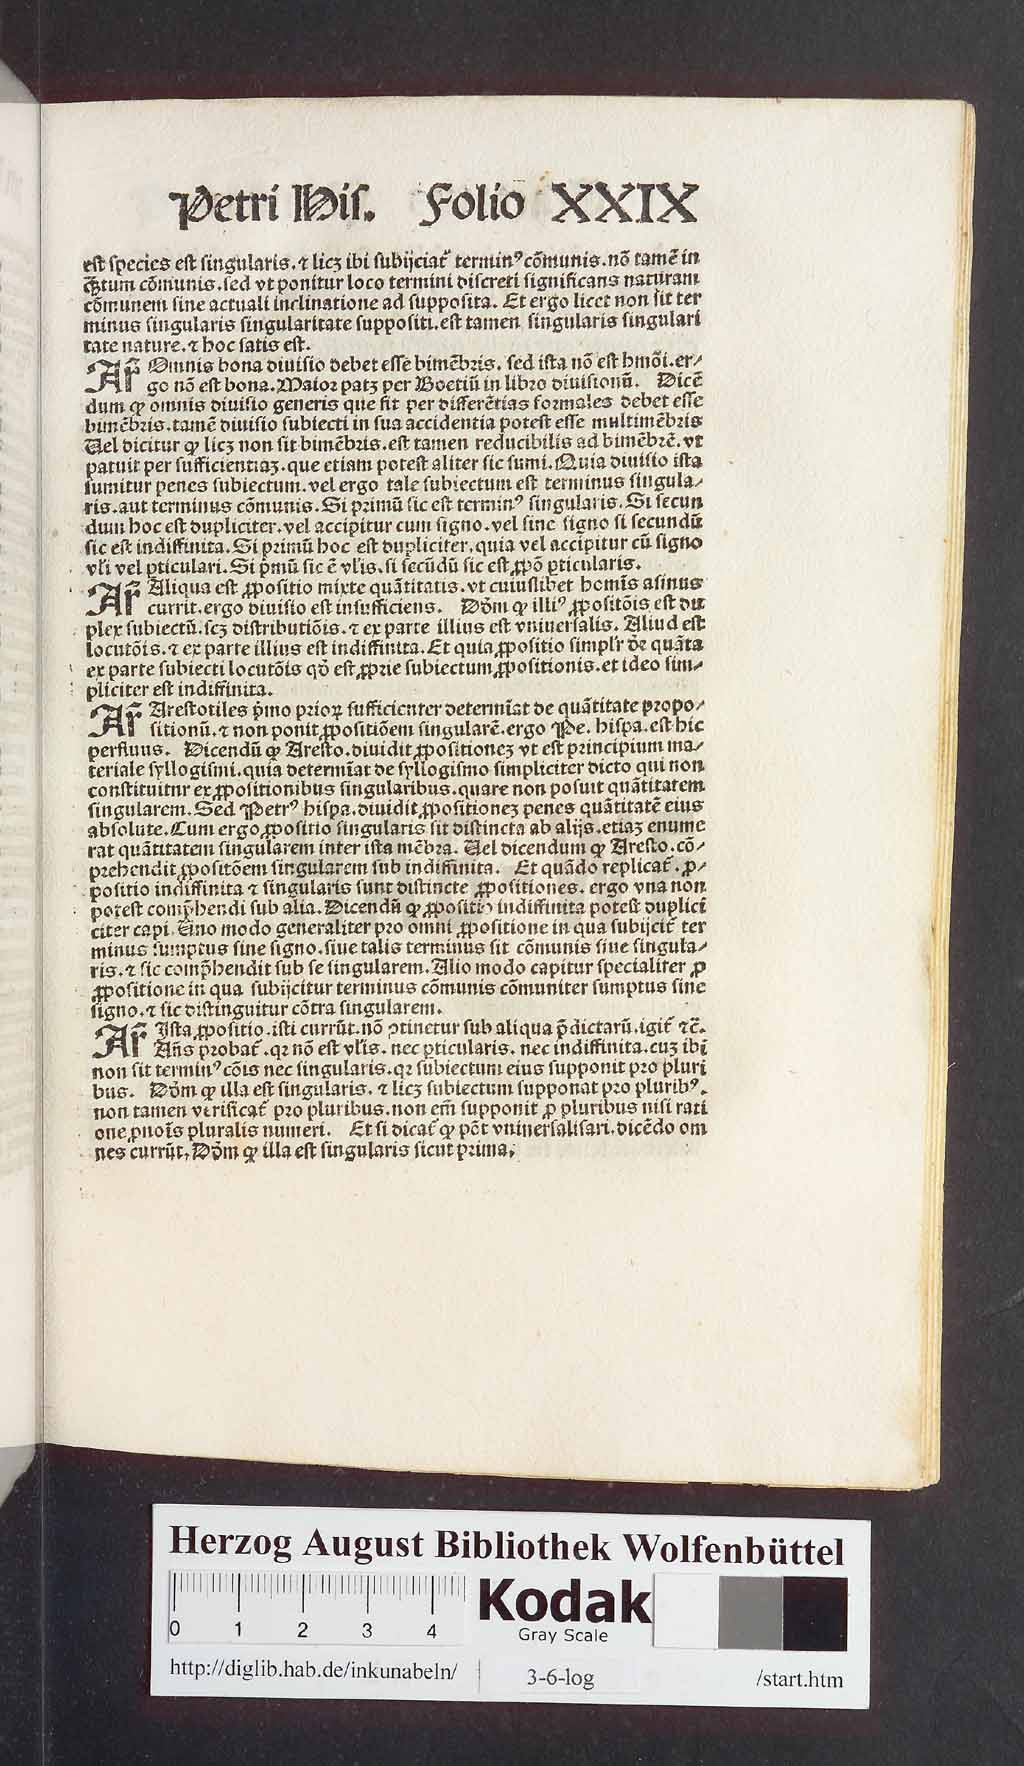 Petri His. Folio XXIX
est species est singularis. ⁊ licꝫ ibi subijciat᷑ terminꝰ cōmunis. nō tamē in
ꝙ̄tum cōmunis. sed vt ponitur loco termini discreti significans naturam
cōmunem sine actuali inclinatione ad supposita. Et ergo licet non sit ter
minus singularis singularitate suppositi. est tamen singularis singulari
tate nature. ⁊ hoc satis est.
Ar̄ Omnis bona diuisio debet esse bimēbris. sed ista nō est hmōi. er⸗
go nō est bona. Maior patꝫ per Boetiū in libro diuisionū. Dicē
dum ꝙ omnis diuisio generis que fit per differētias formales debet esse
bimēbris. tamē diuisio subiecti in sua accidentia potest esse multimēbris
Uel dicitur ꝙ licꝫ non sit bimēbris. est tamen reducibilis ad bimēbrē. vt
patuit per sufficientiaꝫ. que etiam potest aliter sic sumi. Quia diuisio ista
sumitur penes subiectum. vel ergo tale subiectum est terminus singula⸗
ris. aut terminus cōmunis. Si primū sic est terminꝰ singularis. Si secun
dum hoc est dupliciter. vel accipitur cum signo. vel sine signo si secundū
sic est indiffinita. Si primū hoc est dupliciter. quia vel accipitur cū signo
vl̄i vel ꝑticulari. Si p̄mū sic ē vl̄is. si secūdū sic est ꝓpō ꝑticularis.
Ar̄ Aliqua est ꝓpositio mixte quātitatis. vt cuiuslibet homīs asinus
currit. ergo diuisio est insufficiens. Dōm ꝙ illiꝰ ꝓpositōis est du
plex subiectū. scꝫ distributiōis. ⁊ ex parte illius est vniuersalis. Aliud est
locutōis. ⁊ ex parte illius est indiffinita. Et quia ꝓpositio simpl'r dr̄ quāta
ex parte subiecti locutōis qd̄ est ꝓprie subiectum ꝓpositionis. et ideo sim⸗
pliciter est indiffinita.
Ar̄ Arestotiles p̄mo prioꝝ sufficienter determīat de quātitate propo⸗
sitionū. ⁊ non ponit ꝓpositiōem singularē. ergo Pe. hispa. est hic
perfluus. Dicendū ꝙ Aresto. diuidit ꝓpositioneꝫ vt est principium ma⸗
teriale syllogismi. quia determīat de syllogismo simpliciter dicto qui non
constituitnr ex ꝓpositionibus singularibus. quare non posuit quātitatem
singularem. Sed Petrꝰ hispa. diuidit ꝓpositioneꝫ penes quātitatē eius
absolute. Cum ergo ꝓpositio singularis sit distincta ab alijs. etiaꝫ enume
rat quātitatem singularem inter ista mēbra. Uel dicendum ꝙ Aresto. cō⸗
prehendit ꝓpositōem singularem sub indiffinita. Et quādo replicat᷑. ꝓ⸗
positio indiffinita ⁊ singularis sunt distincte ꝓpositiones. ergo vna non
potest comp̄hendi sub alia. Dicendū ꝙ ꝓpositio indiffinita potest duplici
citer capi. Uno modo generaliter pro omni ꝓpositione in qua subijcit᷑ ter
minus sumptus sine signo. siue talis terminus sit cōmunis siue singula⸗
ris. ⁊ sic comp̄hendit sub se singularem. Alio modo capitur specialiter ꝓ
ꝓpositione in qua subijcitur terminus cōmunis cōmuniter sumptus sine
signo. ⁊ sic distinguitur cōtra singularem.
Ar̄ Ista ꝓpositio. isti currūt. nō ꝯtinetur sub aliqua p̄dictarū. igit᷑ ⁊c̄.
Añs probat᷑. qꝛ nō est vl̄is. nec ꝑticularis. nec indiffinita. cuꝫ ibi
non sit terminꝰ cōis nec singularis. qꝛ subiectum eius supponit pro pluri
bus. Dōm ꝙ illa est singularis. ⁊ licꝫ subiectum supponat pro pluribꝰ.
non tamen verificat᷑ pro pluribus. non em̄ supponit ꝓ pluribus nisi rati
one ꝓnoīs pluralis numeri. Et si dicat᷑ ꝙ pōt vniuersalisari. dicēdo om
nes currūt. Dōm ꝙ illa est singularis sicut prima.
Herzog August Bibliothek Wolfenbüttel
0 1 2 3 4
Kodak
Gray Scale
http://diglib.hab.de/inkunabeln/ 3-6-log /start.htm